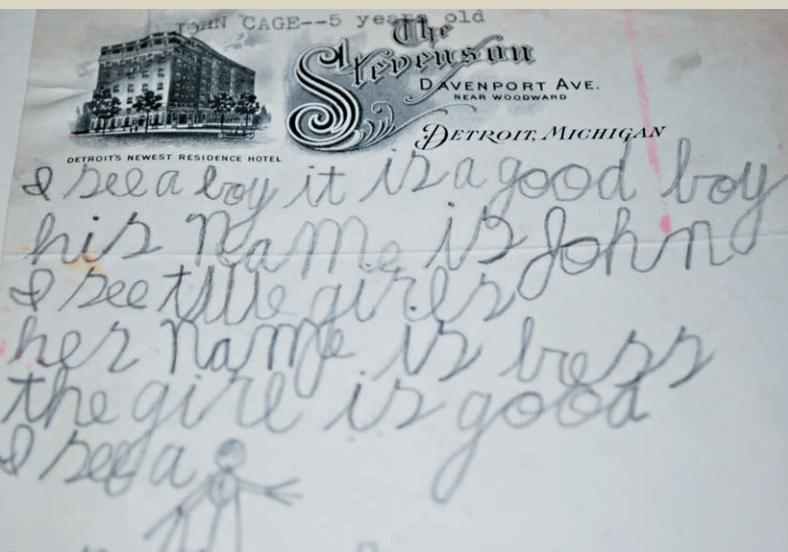 JOHN CAGE--5 years old
The
Stevenson
DAVENPORT AVE.
NEAR WOODWARD
DETROIT, MICHIGAN
DETROIT'S NEWEST RESIDENCE HOTEL
I see a boy it is a good boy
his name is John
I see girls
her name is bess
the girl is good
I see a